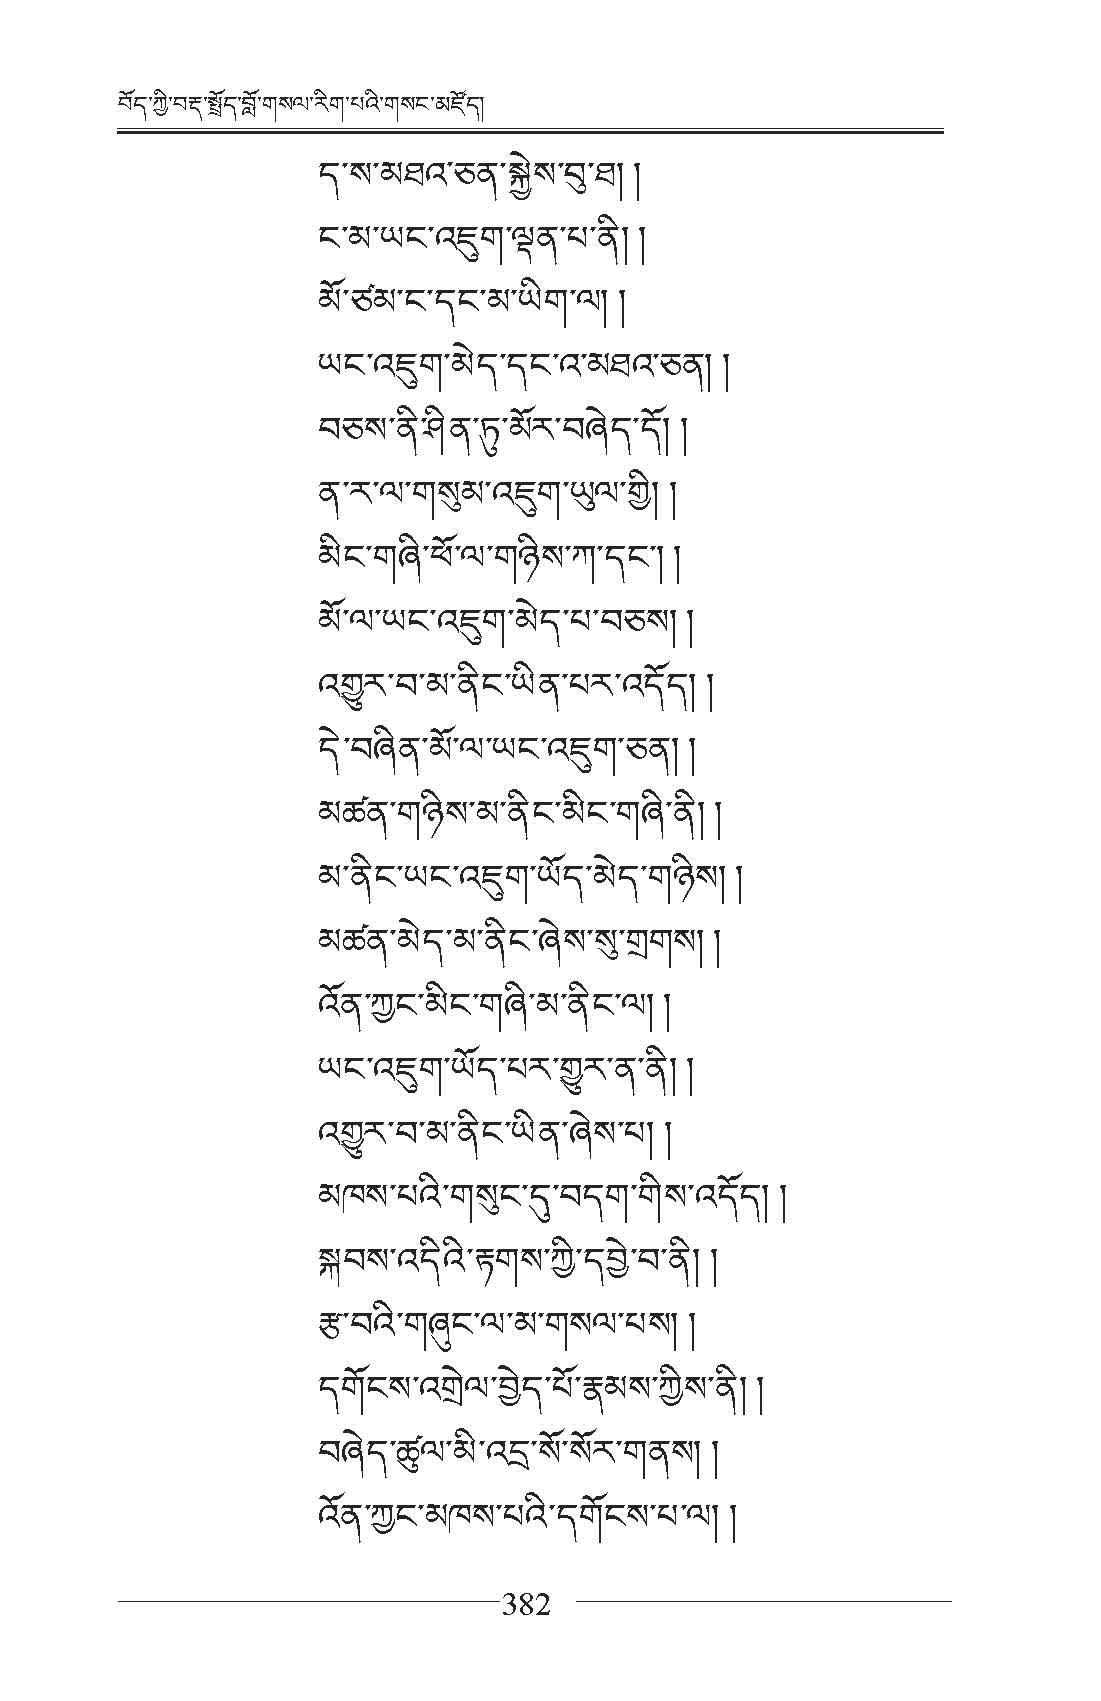 བོད་ཀྱི་བརྡ་སྤྲོད་བློ་གསལ་རིག་པའི་གསང་མཛོད།
ད་ས་མཐའ་ཅན་སྐྱེས་བུ་ཐ། །
ང་མ་ཡང་འཇུག་ལྡན་པ་ནི། །
མོ་ཙམ་ང་དང་མ་ཡིག་ལ། །
ཡང་འཇུག་མེད་དང་འ་མཐའ་ཅན། །
བཅས་ནི་ཤིན་ཏུ་མོར་བཞེད་དོ། །
ན་ར་ལ་གསུམ་འཇུག་ཡུལ་གྱི། །
མིང་གཞི་ཕོ་ལ་གཉིས་ཀ་དང་། །
མོ་ལ་ཡང་འཇུག་མེད་པ་བཅས། །
འགྱུར་བ་མ་ནིང་ཡིན་པར་འདོད། །
དེ་བཞིན་མོ་ལ་ཡང་འཇུག་ཅན། །
མཚན་གཉིས་མ་ནིང་མིང་གཞི་ནི། །
མ་ནིང་ཡང་འཇུག་ཡོད་མེད་གཉིས། །
མཚན་མེད་མ་ནིང་ཞེས་སུ་གྲགས། །
འོན་ཀྱང་མིང་གཞི་མ་ནིང་ལ། །
ཡང་འཇུག་ཡོད་པར་གྱུར་ན་ནི། །
འགྱུར་བ་མ་ནིང་ཡིན་ཞེས་པ། །
མཁས་པའི་གསུང་དུ་བདག་གིས་འདོད། །
སྐབས་འདིའི་རྟགས་ཀྱི་དབྱེ་བ་ནི། །
རྩ་བའི་གཞུང་ལ་མ་གསལ་པས། །
དགོངས་འགྲེལ་བྱེད་པོ་རྣམས་ཀྱིས་ནི། །
བཞེད་ཚུལ་མི་འདྲ་སོ་སོར་གནས། །
འོན་ཀྱང་མཁས་པའི་དགོངས་པ་ལ། །
382